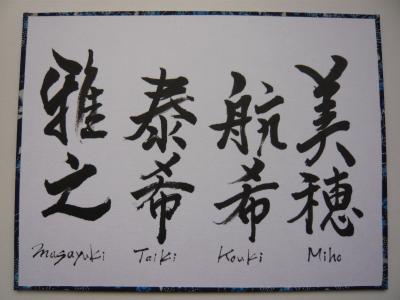 美穂
航希
泰希
雅之
Masayuki Taiki Kouki Miho